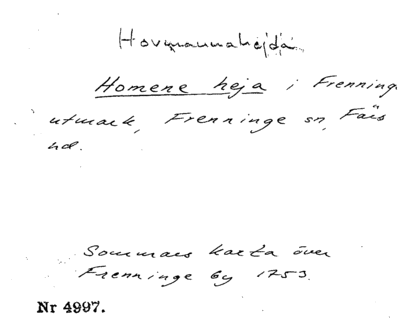 Hovmannahejda
Homene heja i Frenninge
utmark, Frenninge sn, Färs
hd.
Sommars karta över
Frenninge by 1753.
Nr 4997.